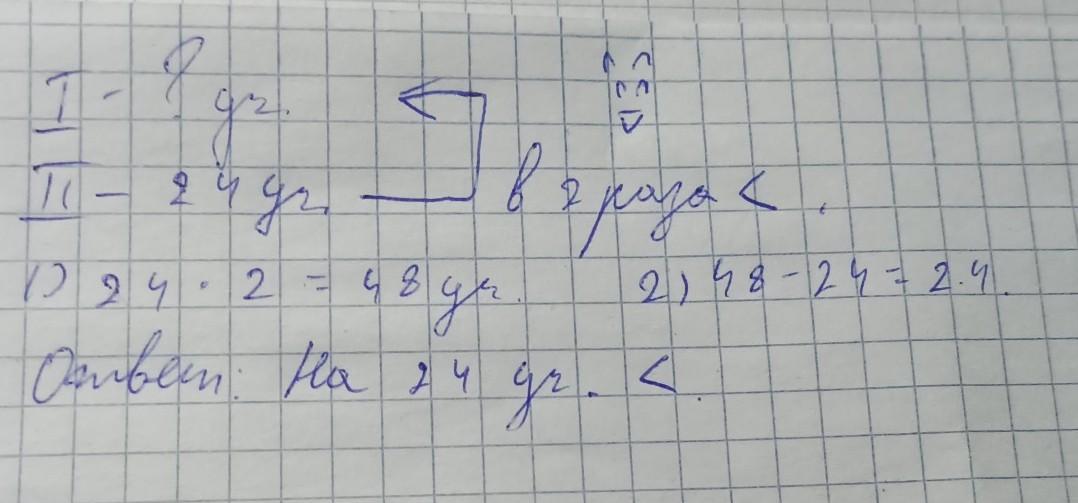 I - ? уч.
II - 24 уч. в 2 раза < .
1) 24 · 2 = 48 уч. 2) 48 - 24 = 24.
Ответ: На 24 уч. <.